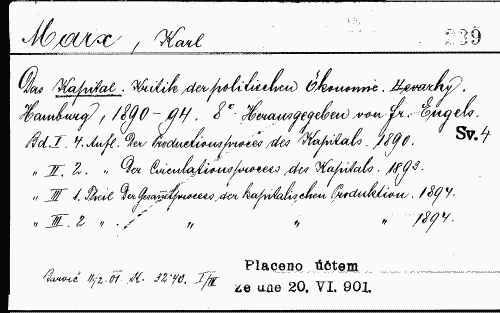 Marx, Karl
239
Das Kapital. Kritik der politischen Ökonomie. 4 svazky.
Hamburg, 1890-94. 8° Herausgegeben von Fr. Engels.
Bd. I. 4. Aufl. Der Productionsprocess des Kapitals. 1890. Sv. 4
„ II. 2. „ Der Circulationsprocess des Kapitals. 1893.
„ III 1. Theil Der Gesammtprocess der kapitalischen Produktion. 1894.
„ III. 2 „ „ „ „ 1894.
Placeno účtem
Barvič 11/2 01 K. 32·40. I/IV
ze dne 20. VI. 901.